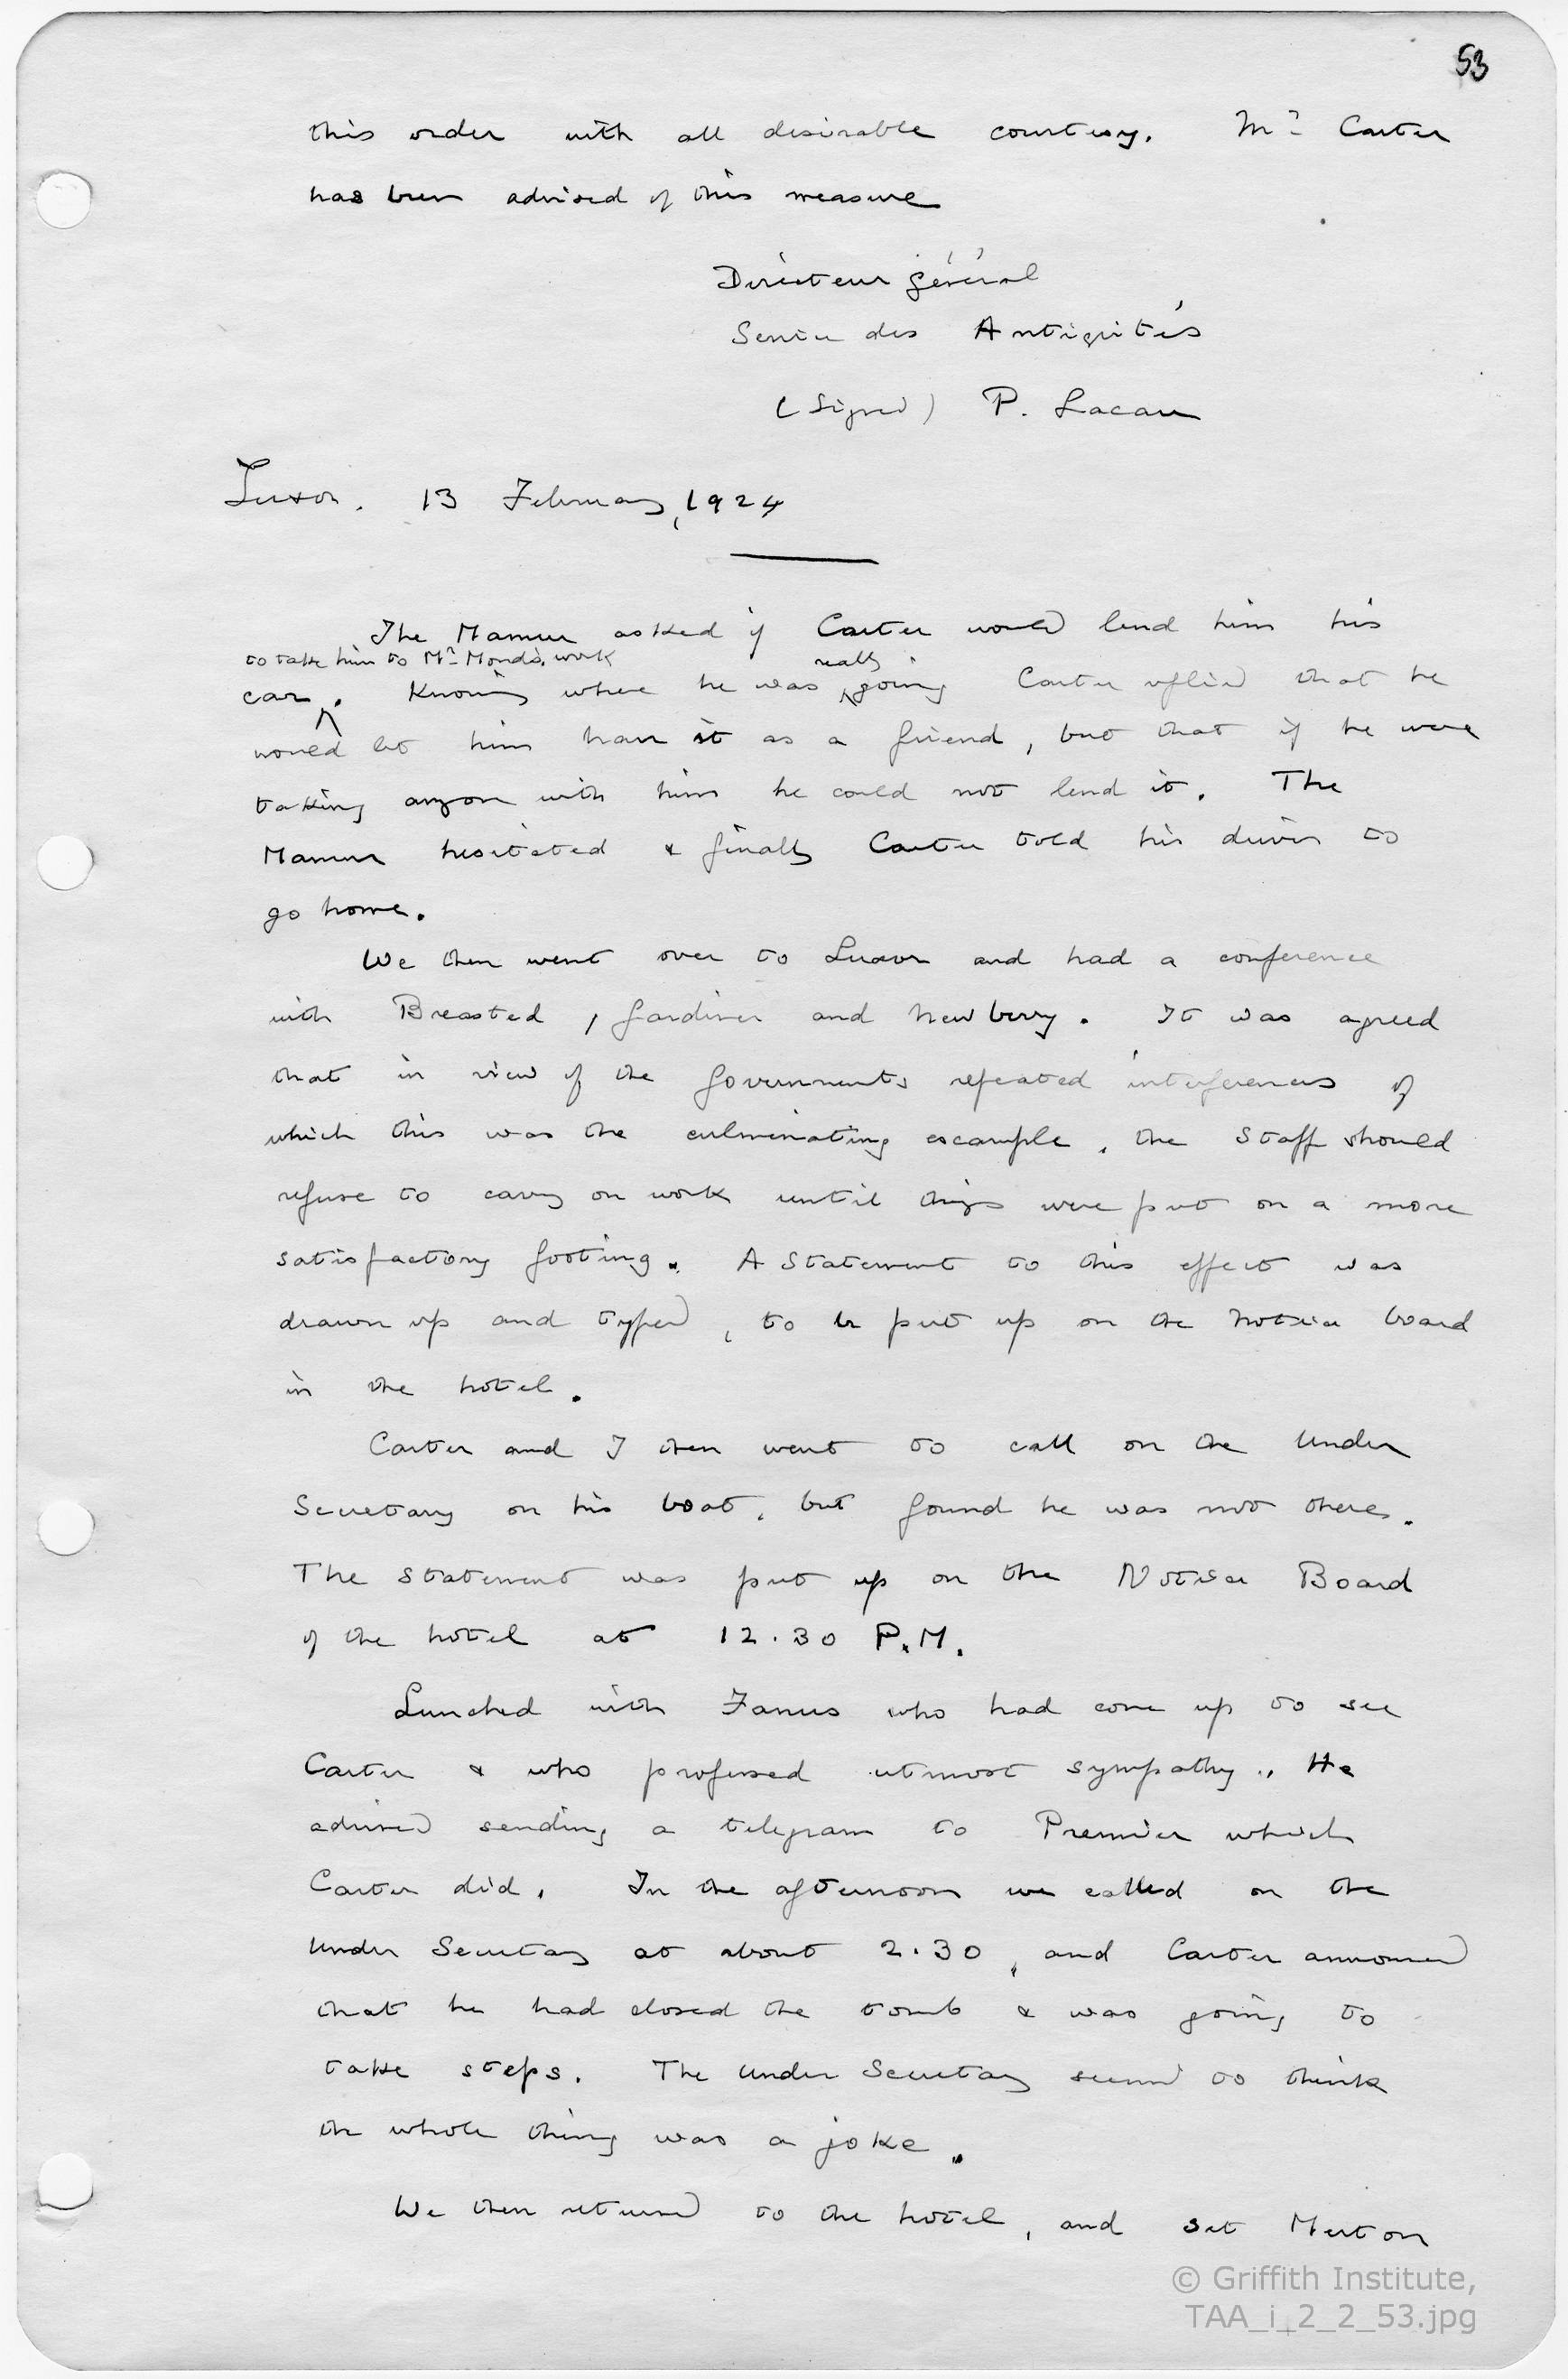 53
this order with all desirable courtesy. Mr Carter
has been advised of this measure
Directeur Général
Service des Antiquités
(Signed) P. Lacau
Luxor. 13 February, 1924
The Mamur asked if Carter would lend him his
to take him to Mr Mond's work really
car. Knowing where he was going Carter replied that he
would let him have it as a friend, but that if he were
taking anyone with him he could not lend it. The
Mamur hesitated & finally Carter told his driver to
go home.
We then went over to Luxor and had a conference
with Breasted, Gardiner and Newberry. It was agreed
that in view of the Governments repeated interferences of
which this was the culminating example, the Staff should
refuse to carry on work until things were put on a more
satisfactory footing. A Statement to this effect was
drawn up and typed, to be put up on the Notice board
in the hotel.
Carter and I then went to call on the Under
Secretary on his boat, but found he was not there.
The statement was put up on the Notice Board
of the hotel at 12.30 P.M.
Lunched with Fanus who had come up to see
Carter & who professed utmost sympathy. He
advised sending a telegram to Premier which
Carter did. In the afternoon we called on the
Under Secretary at about 2.30, and Carter announced
that he had closed the tomb & was going to
take steps. The Under Secretary seemed to think
the whole thing was a joke.
We then returned to the hotel, and set Merton
© Griffith Institute,
TAA_i_2_2_53.jpg